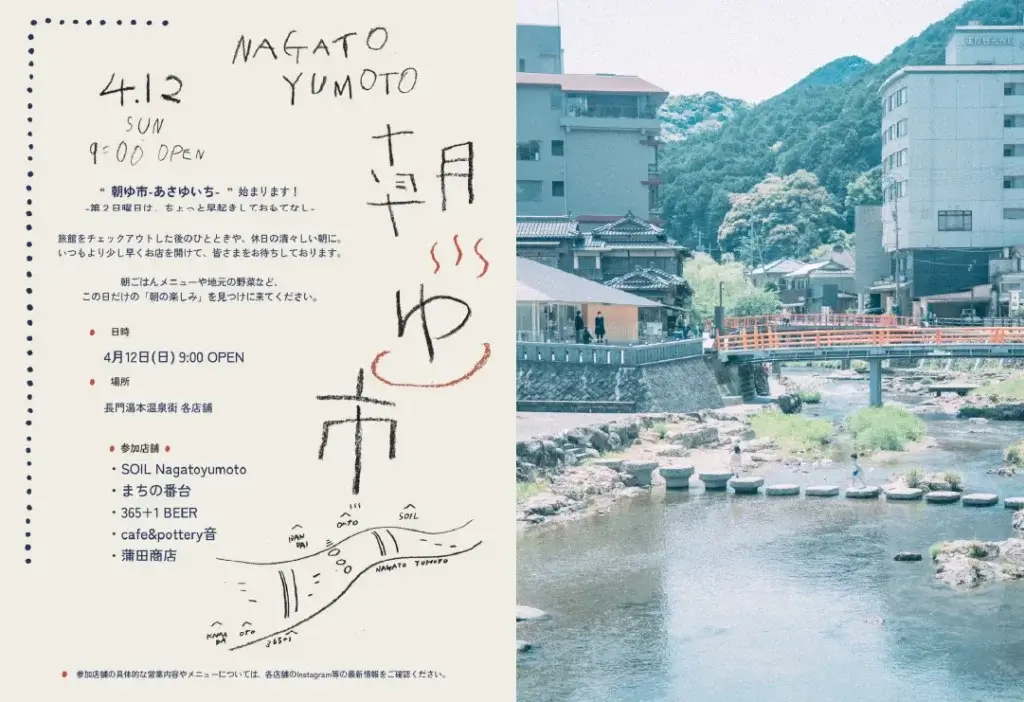 NAGATO
YUMOTO
4.12
SUN
9:00 OPEN
朝ゆ市
“ 朝ゆ市-あさゆいち- ” 始まります！
-第２日曜日は、ちょっと早起きしておもてなし-
旅館をチェックアウトした後のひとときや、休日の清々しい朝に。
いつもより少し早くお店を開けて、皆さまをお待ちしております。
朝ごはんメニューや地元の野菜など、
この日だけの「朝の楽しみ」を見つけに来てください。
日時
4月12日(日) 9:00 OPEN
場所
長門湯本温泉街 各店舗
参加店舗
・SOIL Nagatoyumoto
・まちの番台
・365＋1 BEER
・cafe&pottery音
・蒲田商店
SOIL
BAN
DAI
NAGATO YUMOTO
OTO
365+1
参加店舗の具体的な営業内容やメニューについては、各店舗のInstagram等の最新情報をご確認ください。